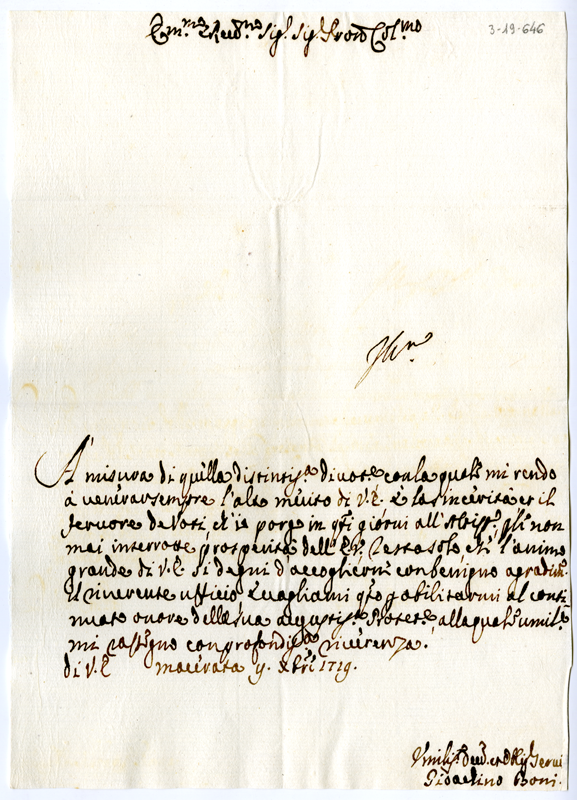 Em.mo Rev.mo Sig.r Sig.r Pron Col.mo
3-19-646
A misura di quella distintis.a divot.e con la quale mi rendo
à venerar sempre l'alto merito di V.E. è la sincerità et il
fervore de voti, ch'io porgo in q.ti giorni all'Altiss.o p
mai interrotte prosperità dell'E.V. Resta solo ch'l'animo
grande di V.E. si degni d'accogliermi con benigno agradim.o
il riverente ufficio, e vagliami q.to p abilitarmi al conti
nuato onore della sua augustis.a Protet.e alla quale umilm.e
mi rasegno con profondis.a riverenza.
di V.E. Macerata 9. Xbre 1719.
Umilis.o dev.o et servi
Gioachino Boni.